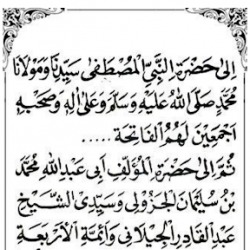 اِلَى حَضْرَةِ النَّبِيِّ الْمُصْطَفَى سَيِّدِنَا وَمَوْلَانَا
مُحَمَّدٍ صَلَّى اللهُ عَلَيْهِ وَسَلَّمَ وَعَلَى اٰلِهِ وَصَحْبِهِ
اَجْمَعِيْنَ لَهُمُ الْفَاتِحَةُ .....
ثُمَّ اِلَى حَضْرَةِ الْمُؤَلِّفِ اَبِى عَبْدِ اللهِ مُحَمَّدْ
بِنْ سُلَيْمَانَ الْجَزُوْلِى وَسَيِّدِى الشَّيْخِ
عَبْدِ الْقَادِرِ الْجِيْلَانِى وَاَئِمَّةِ الْاَرْبَعَةِ